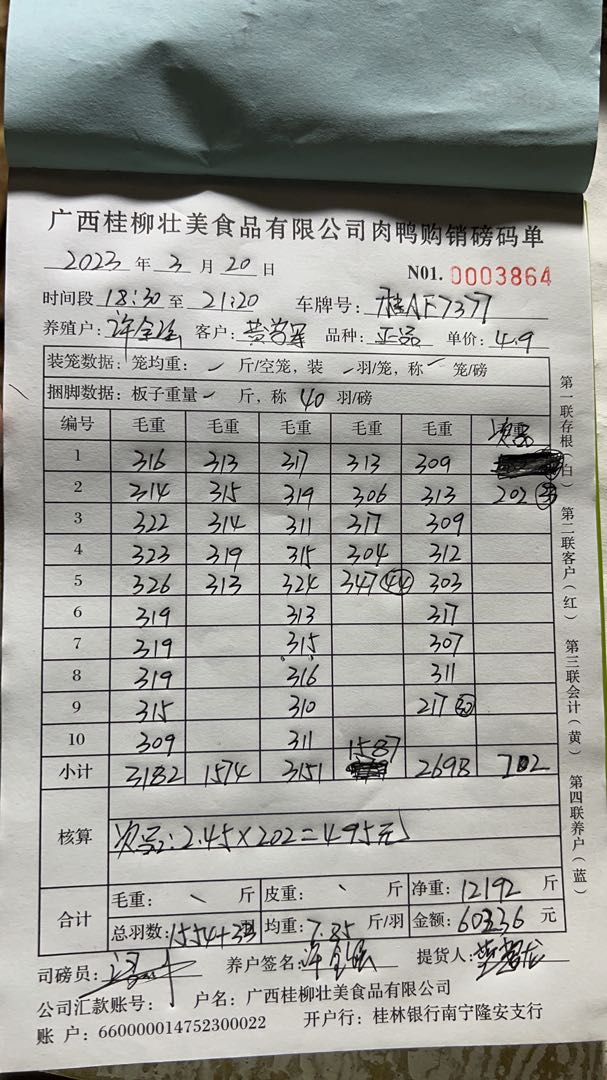 广西桂柳壮美食品有限公司肉鸭购销磅码单
2023 年 3 月 20 日 N01. 0003864
时间段 18:30 至 21:20 车牌号: 桂AF7377
养殖户: 许金强 客户: 品种: 正品 单价: 4.9
装笼数据: 笼均重: 斤/空笼, 装 羽/笼, 称 笼/磅
捆脚数据: 板子重量 斤, 称 40 羽/磅
编号 毛重 毛重 毛重 毛重 毛重 次品
1 316 313 317 313 309
2 314 315 319 306 313 202
3 322 314 311 317 309
4 323 319 315 304 312
5 326 313 324 347 44 303
6 319 313 317
7 319 315 307
8 319 316 311
9 315 310 217 30
10 309 311
小计 3182 1574 3151 1587 2698 202
核算 次品: 2.45×202=495元
合计 毛重: 斤 皮重: 斤 净重: 12192 斤
总羽数: 1554+33 均重: 7.85 斤/羽 金额: 元
司磅员: 养户签名: 许金强 提货人:
公司汇款账号: 户名: 广西桂柳壮美食品有限公司
账 户: 660000014752300022 开户行: 桂林银行南宁隆安支行
第一联存根(白) 第二联客户(红) 第三联会计(黄) 第四联养户(蓝)